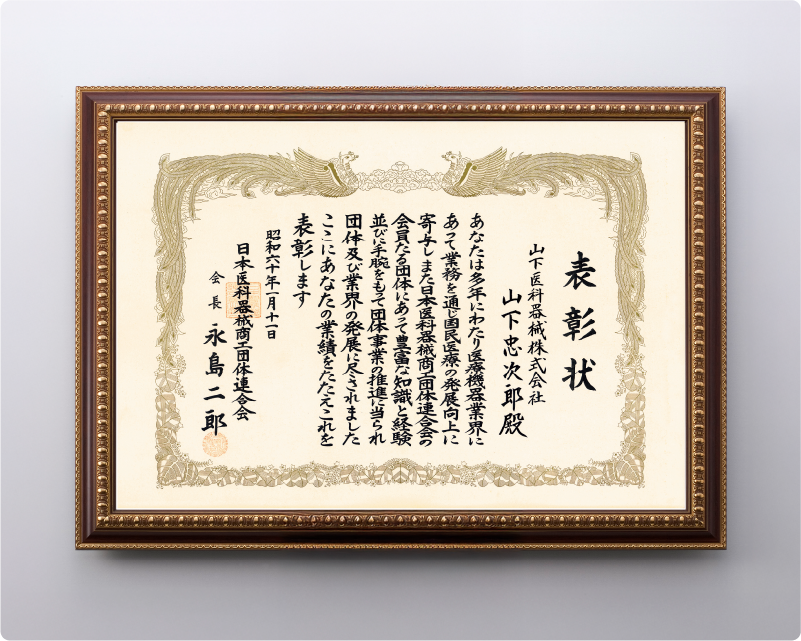 表彰状
山下医科器械株式会社
山下忠次郎殿
あなたは多年にわたり医療機器業界に
あって業務を通じ国民医療の発展向上に
寄与しまた日本医科器械商工団体連合会の
会員たる団体にあって豊富な知識と経験
並びに手腕をもって団体事業の推進に当られ
団体及び業界の発展に尽されました
ここにあなたの業績をたたえこれを
表彰します
昭和六十年一月十一日
日本医科器械商工団体連合会
会長 永島二郎